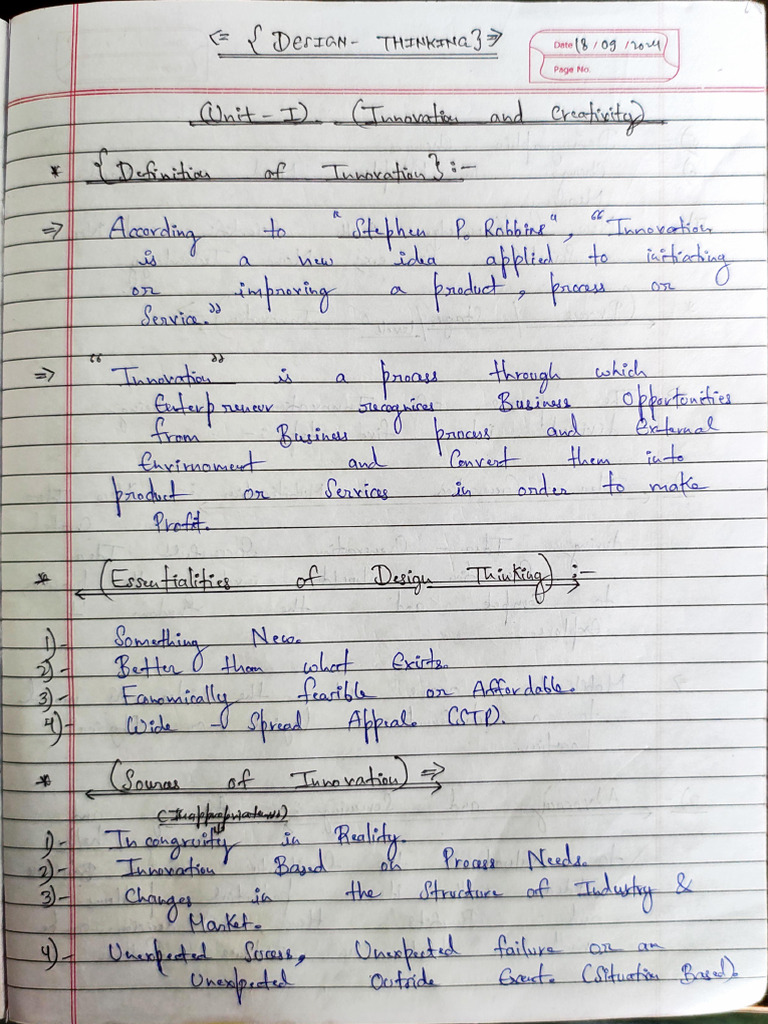 <= { DESIGN - THINKING } =>
Date 18 / 09 / 2024
Page No.
(Unit - I). (Innovation and Creativity)
* { Definition of Innovation } :-
=> According to "Stephen P. Robbins", "Innovation
is a new idea applied to initiating
or improving a product, process or
Service."
=> "Innovation" is a process through which
Enterpreneur recognices Business Opportunities
from Business process and External
Envirnoment and Convert them into
product or Services in order to make
Profit.
* (Essentialities of Design Thinking) :-
1)- Something New.
2)- Better than what Exists.
3)- Eanomically feasible or Affordable.
4)- Wide - Spread Appeal. (STP).
* (Sources of Innovation) =>
(Inappropriateness)
1)- Incongruity in Reality.
2)- Innovation Based on Process Needs.
3)- Changes in the Structure of Industry &
Market.
4)- Unexpected Sucess, Unexpected failure or an
Unexpected Outside Event. (Situation Based).